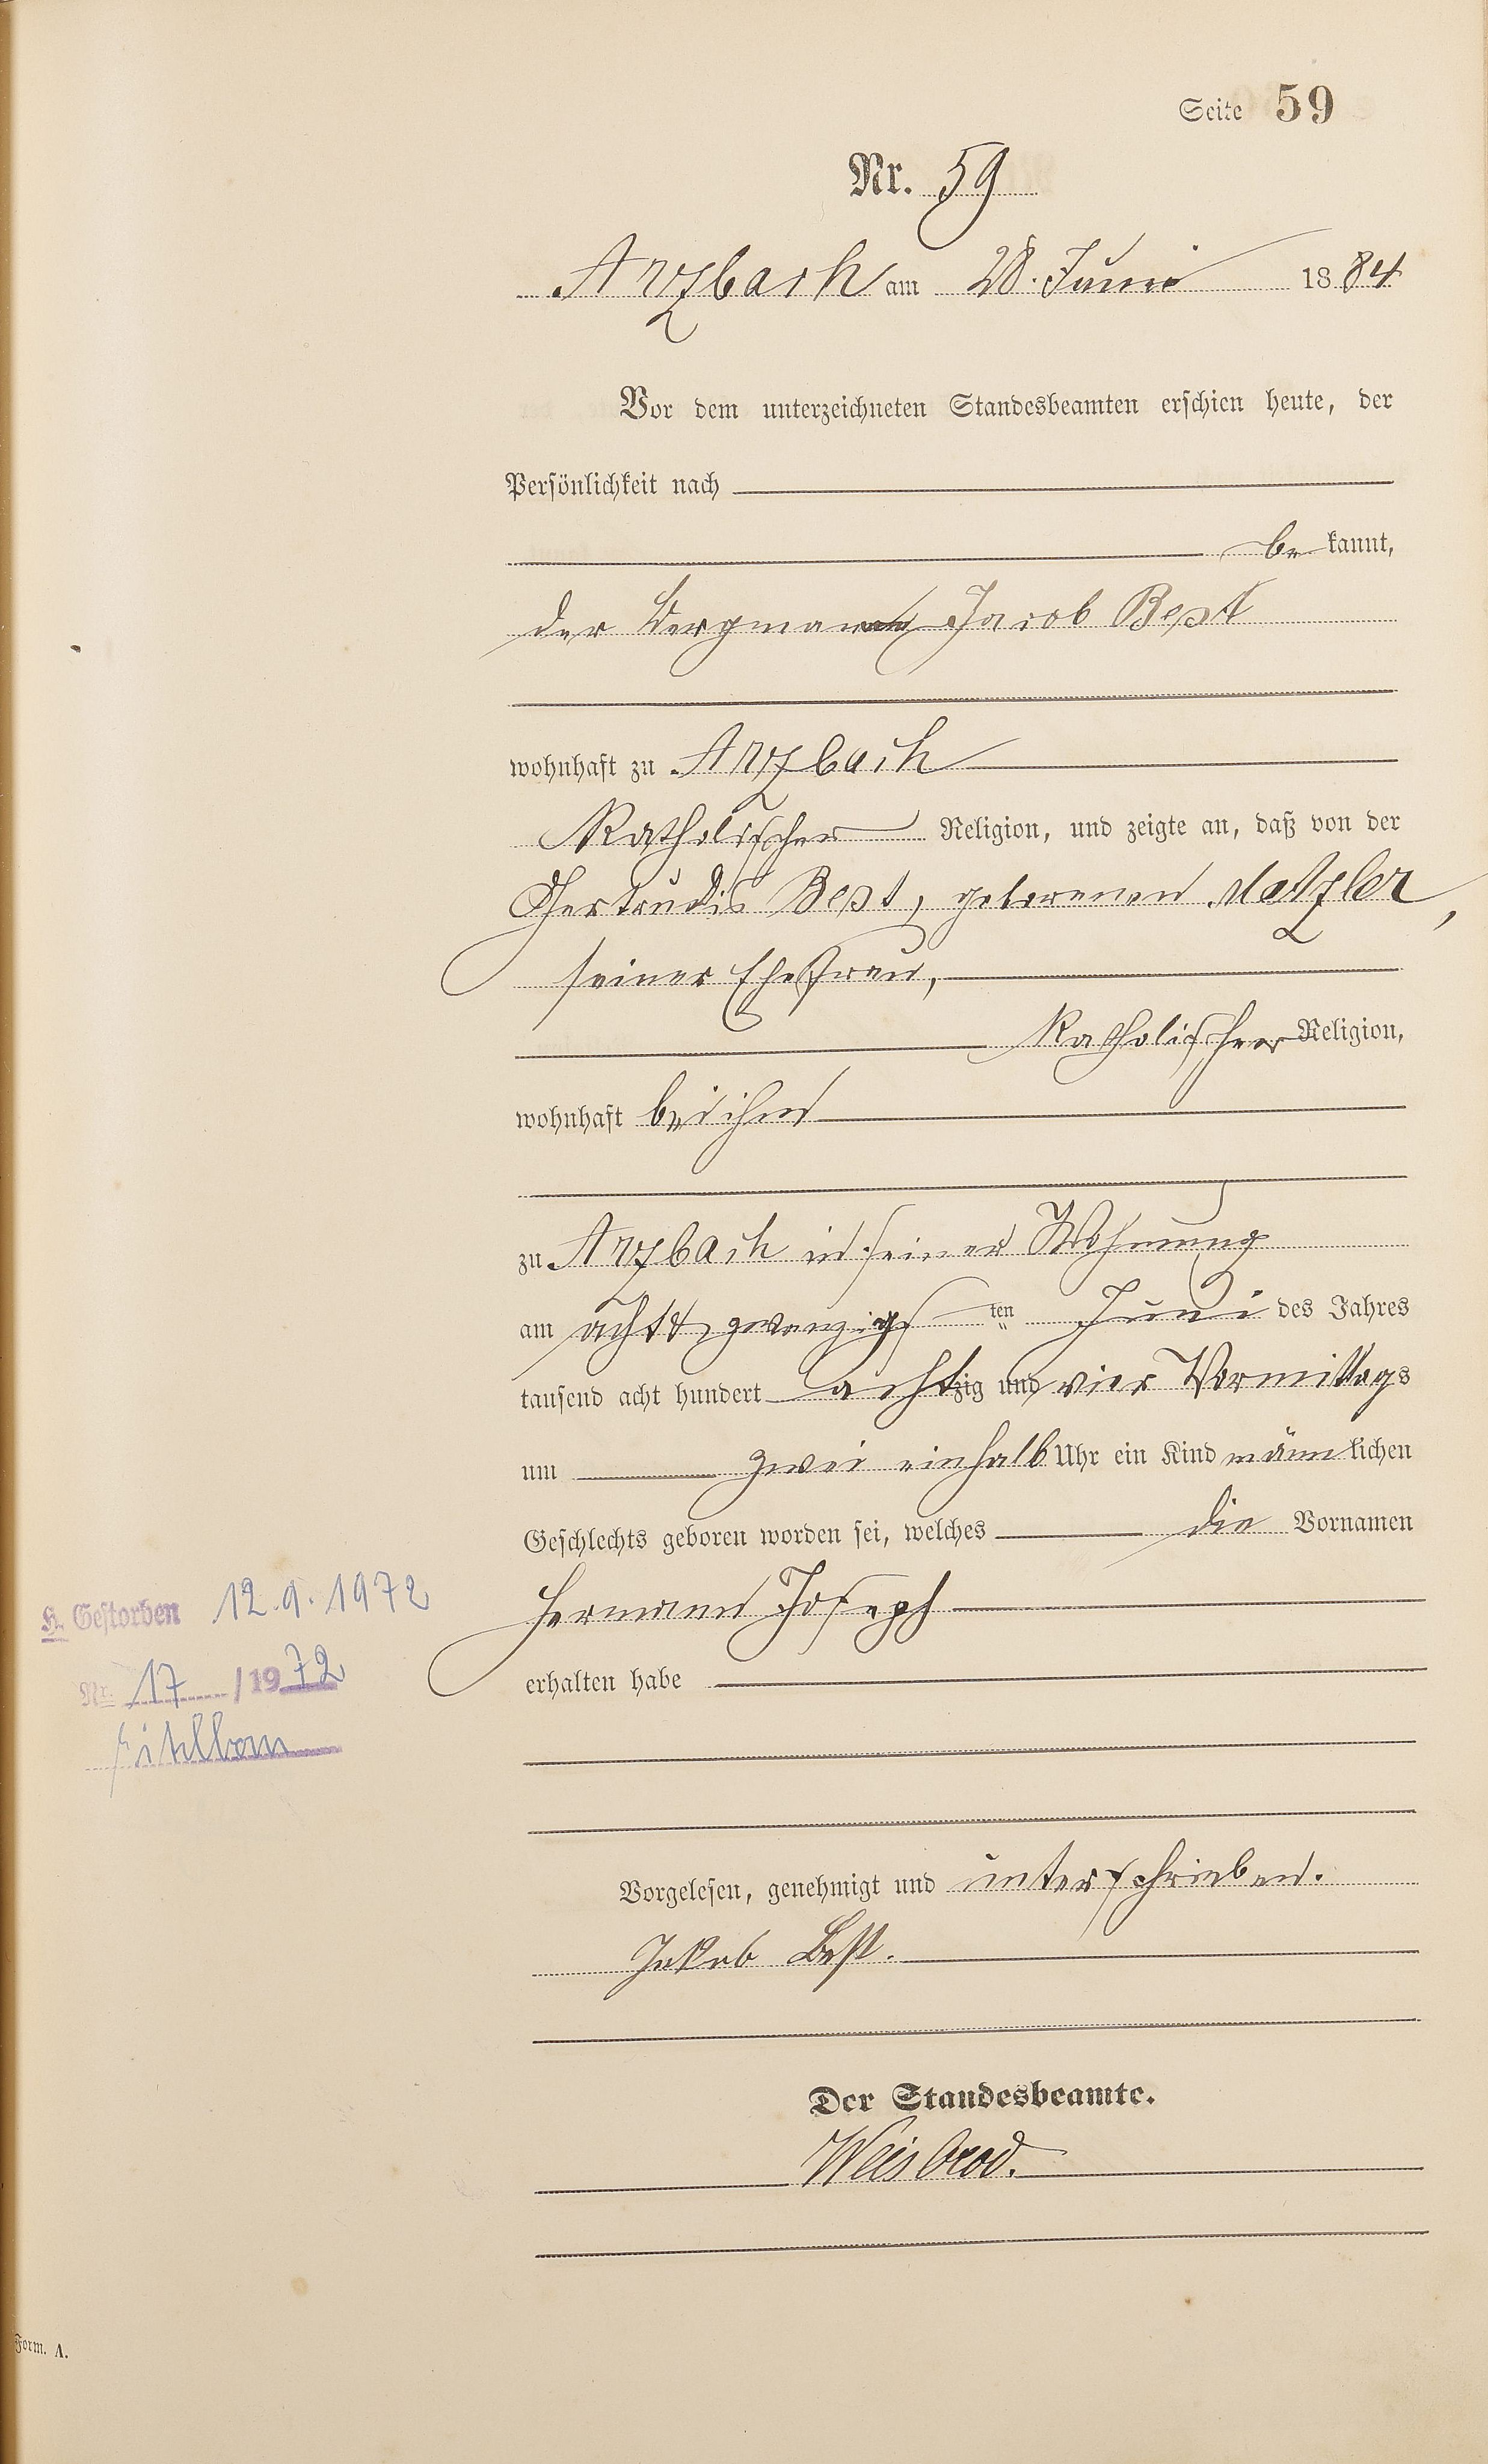 Seite 59
Nr. 59
Arzbach am 28. Juni 1884
Vor dem unterzeichneten Standesbeamten erschien heute, der
Persönlichkeit nach
bekannt,
der Bergmann Jacob Best
wohnhaft zu Arzbach
Katholischer Religion, und zeigte an, daß von der
Gertrudis Best, geborenen Metzler,
seiner Ehefrau,
Katholischer Religion,
wohnhaft bei ihm
zu Arzbach in seiner Wohnung
am acht zwanzigsten Juni des Jahres
tausend acht hundert achtzig und vier Vormittags
um zwei einhalb Uhr ein Kind männlichen
Geschlechts geboren worden sei, welches die Vornamen
Hermann Joseph
H. Gestorben 12.9.1972
erhalten habe
Nr. 17 / 1972
Vorgelesen, genehmigt und unterschrieben.
Jakob Best.
Der Standesbeamte.
Weisbrod.
Form. A.